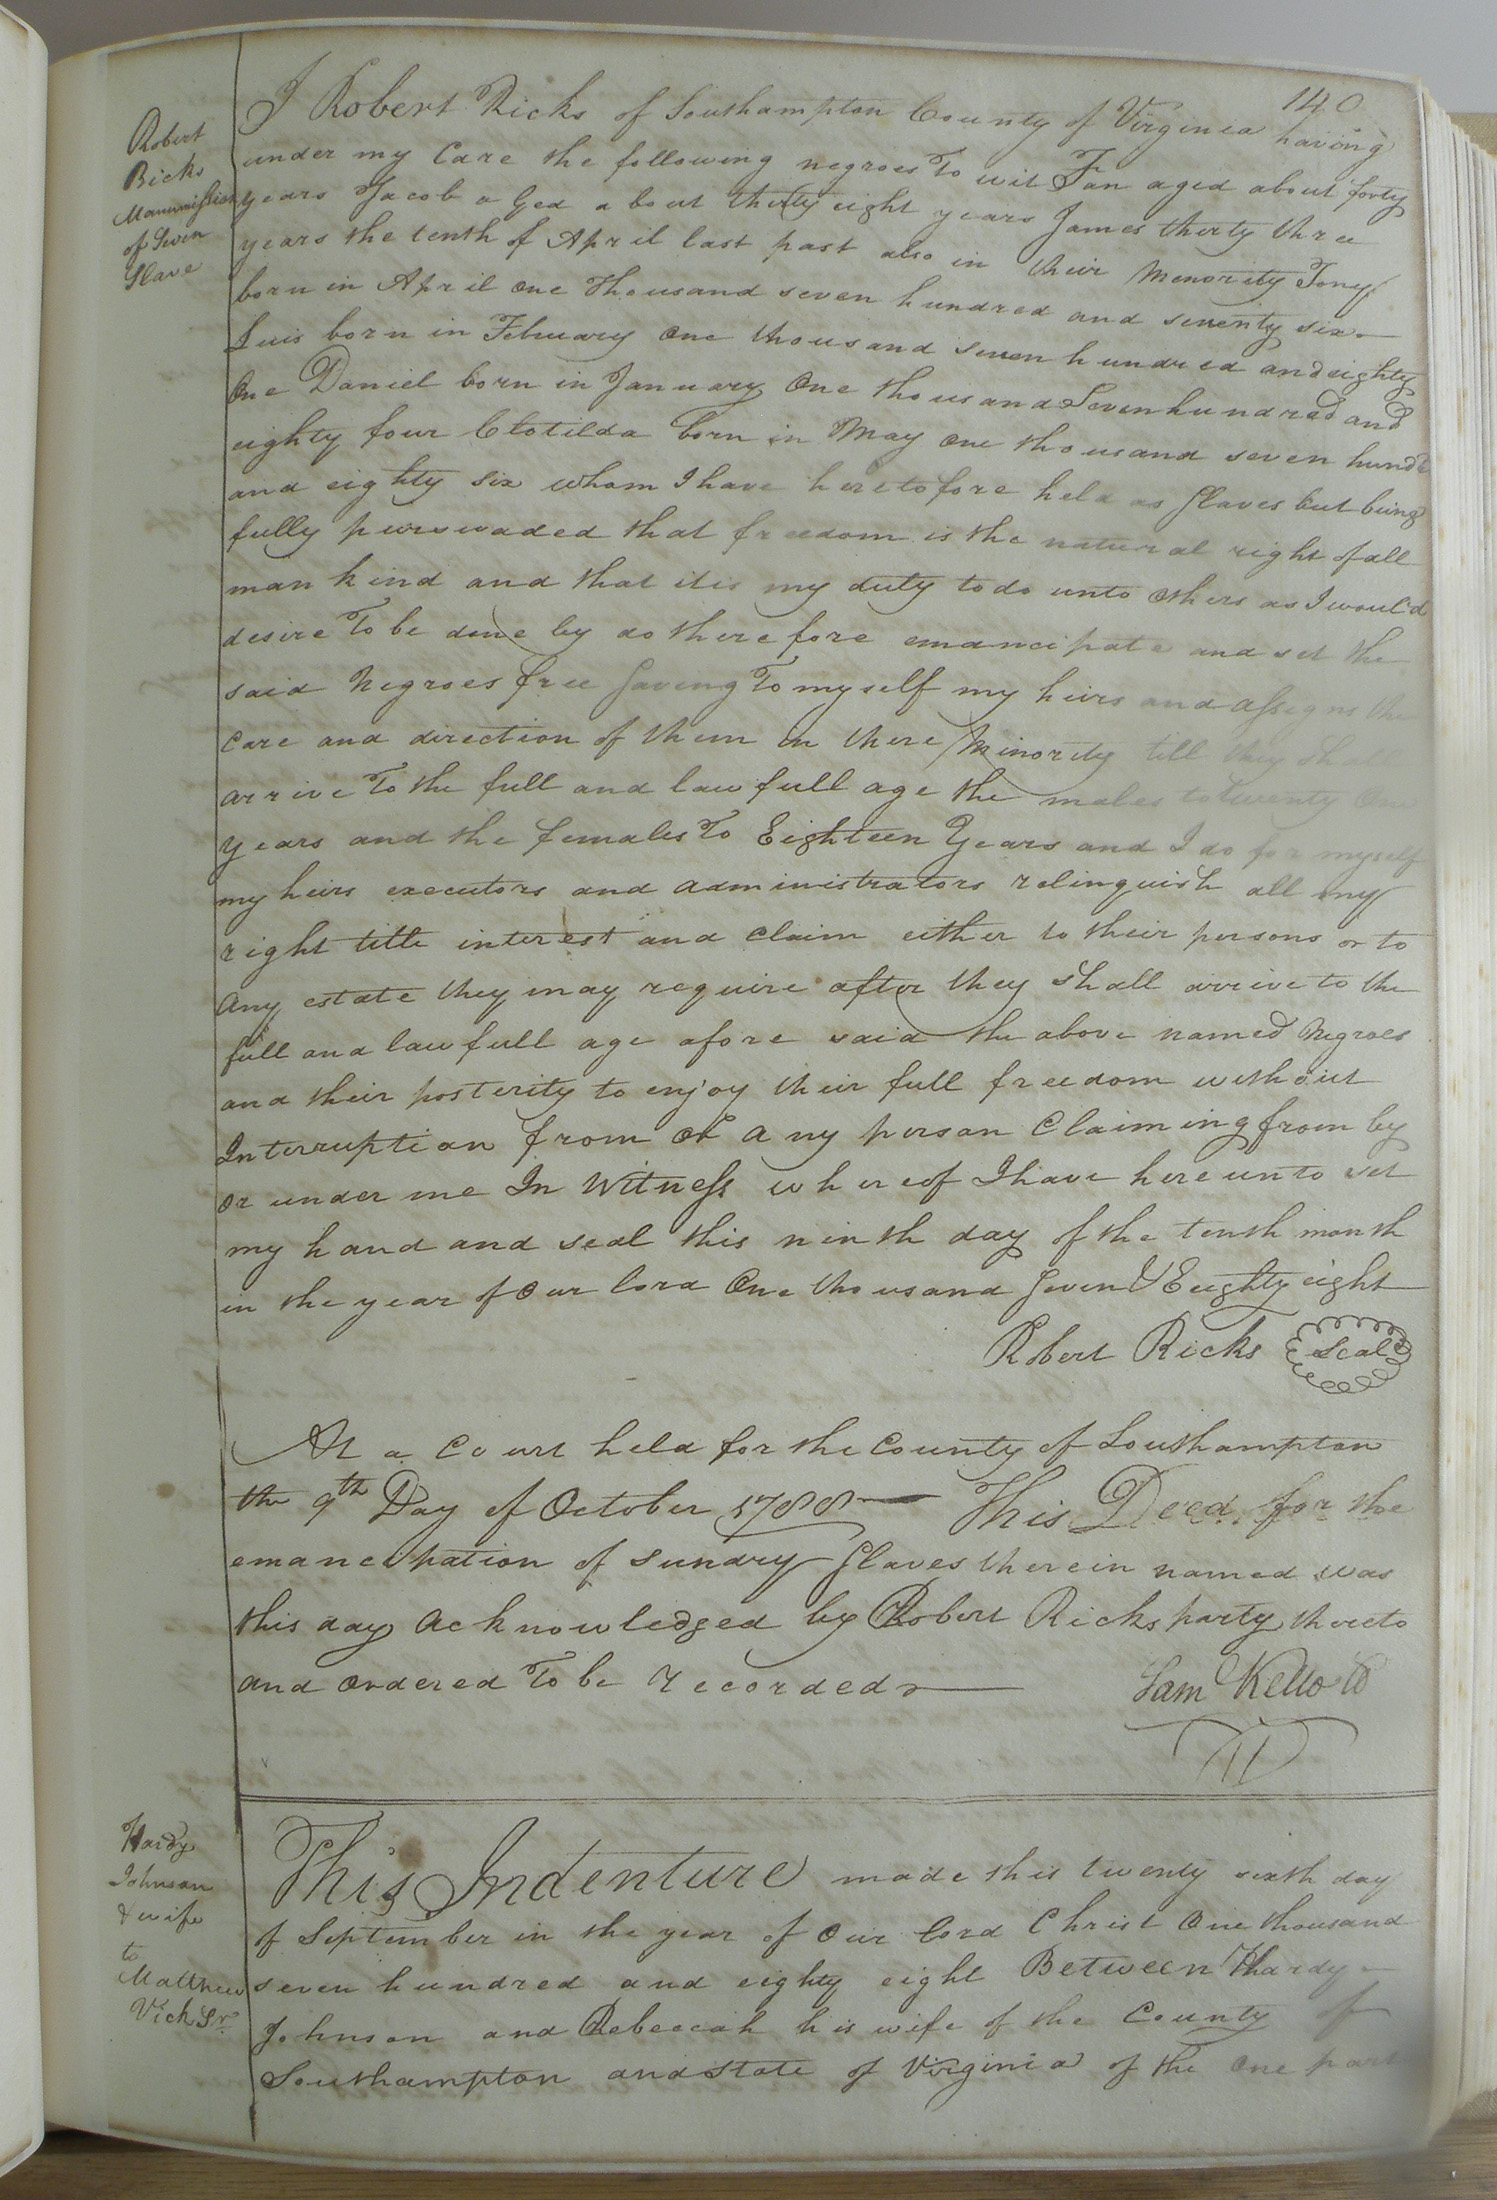 140
Robert
Ricks
Manumission
of Seven
Slave
I Robert Ricks of Southampton County of Virginia having
under my Care the following negroes To wit Jan aged about forty
years Jacob aGed about thirty eight years James thirty three
years the tenth of April last past also in their Menority Tony
born in April One Thousand seven hundred and seventy six
Luis born in February One thousand seven hundred and eighty
One Daniel born in January One thousand Seven hundred and
eighty four Clotilda born in May One thousand seven hundd
and eighty six whom I have heretofore held as Slaves but being
fully perswaded that freedom is the natural right of all
mankind and that it is my duty to do unto others as I would
desire To be done by do therefore emancipate and set the
said Negroes free Saveing To myself my heirs and assigns the
Care and direction of them in there Minority till they shall
arrive To the full and lawfull age the males to twenty One
years and the females To Eighteen Years and I do for myself
my heirs executors and administrators relinquish all my
right title interest and Claim either to their persons or to
any estate they may require after they shall arrive to the
full and lawfull age afore said the above named Negroes
and their posterity to enjoy their full freedom without
Interruption from of any person Claiming from by
or under me In Witness whereof I have hereunto set
my hand and seal this ninth day of the tenth month
in the year of Our lord One thousand Seven & Eighty eight
Robert Ricks Seal
At a Court held for the County of Southampton
the 9th Day of October 1788 This Deed for the
emancipation of sundry Slaves therein named was
this day acknowledged by Robert Ricks party thereto
and Ordered To be recorded
Sam Kello
Hardy
Johnson
& wife
to
Matthew
Vick Sr
This Indenture made this twenty sixth day
of September in the year of Our lord Christ One thousand
seven hundred and eighty eight Between Hardy
Johnson and Rebeccah his wife of the County of
Southampton and state of Virginia of the One part